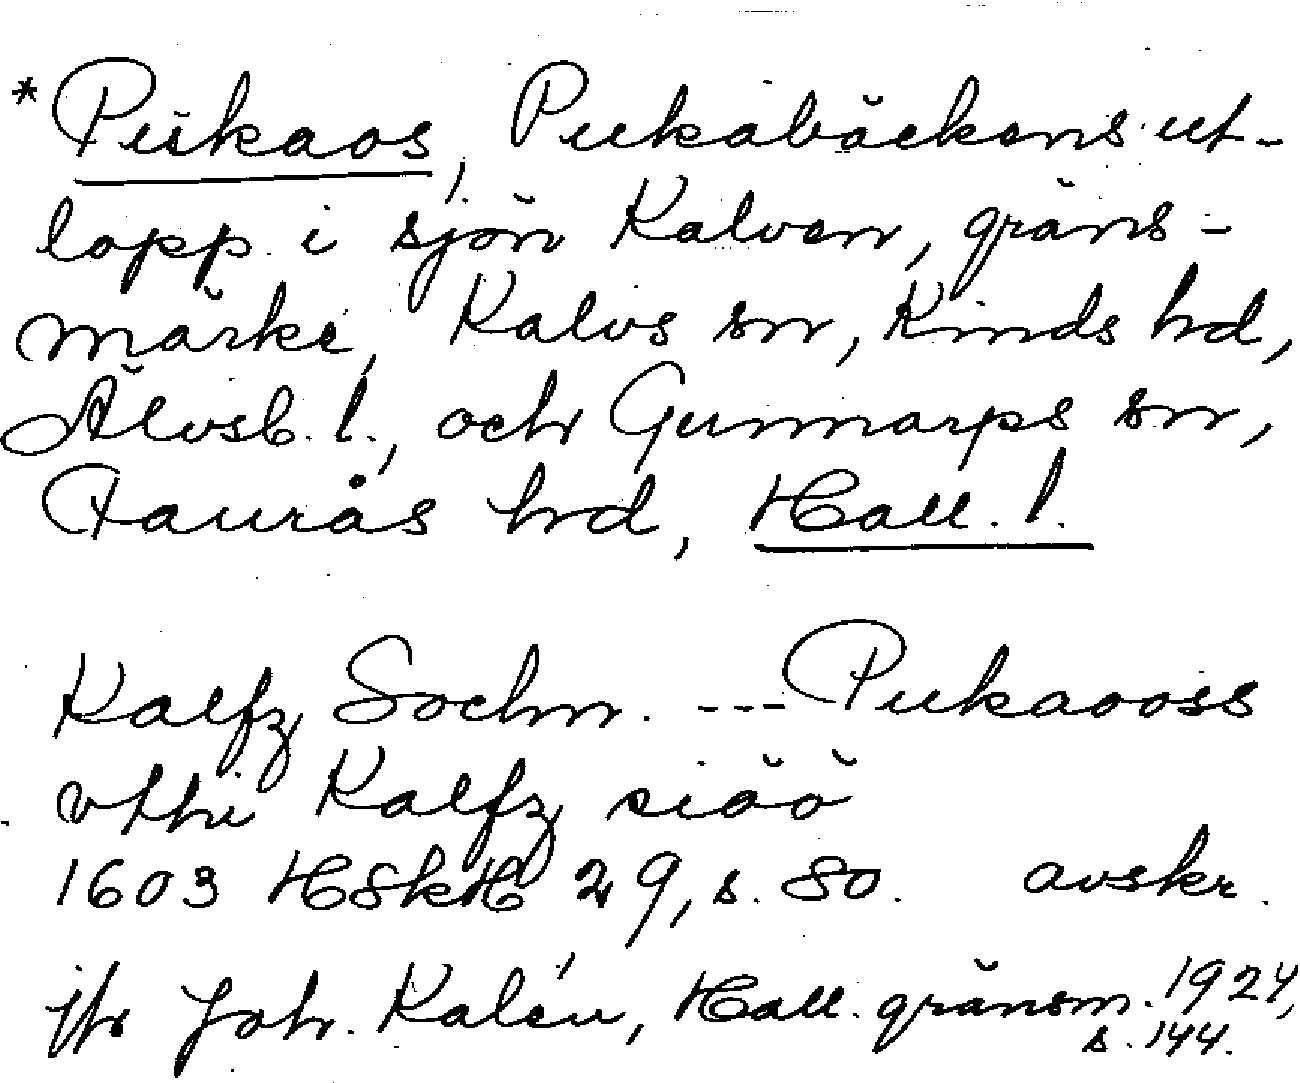 *Pukaos, Pukabäckens ut-
lopp i sjön Kalven, gräns-
märke, Kalvs sn, Kinds hd,
Älvsb. l., och Gunnarps sn,
Faurås hd, Hall. l.
Kalfz Sochn. --- Pukaooss
vthi Kalfz siöö
1603 HSkH 29, s. 80. avskr.
jfr Joh. Kalén, Hall. gränsm. 1924,
s. 144.